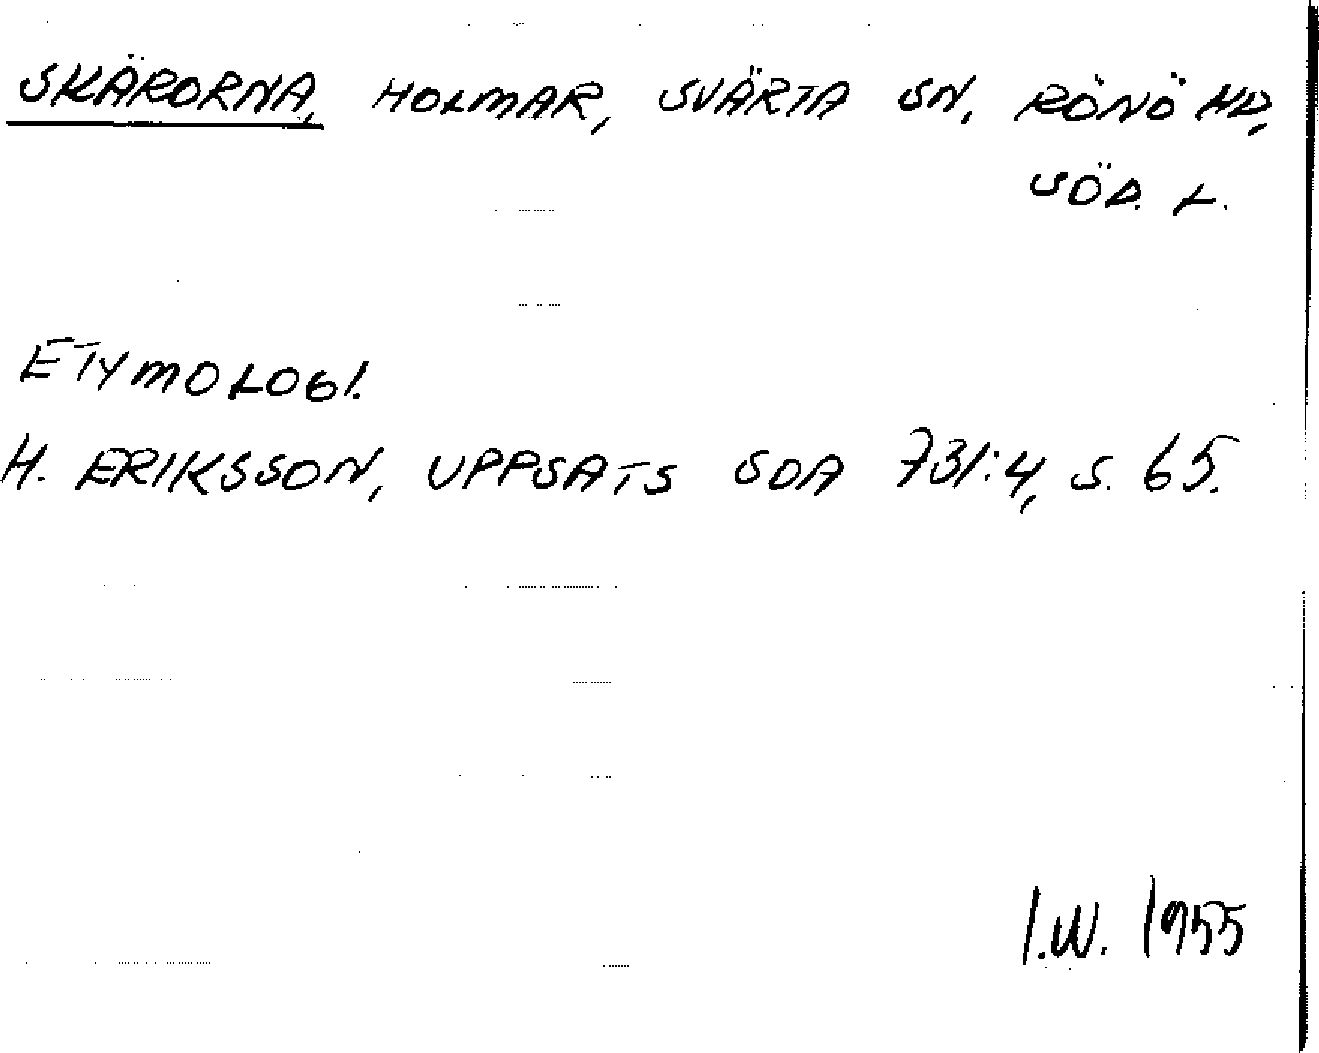 SKÄRORNA, HOLMAR, SVÄRTA SN, RÖNÖ HD,
SÖD. L.
ETYMOLOGI.
H. ERIKSSON, UPPSATS SOA 731:4, S. 65.
I.W. 1955